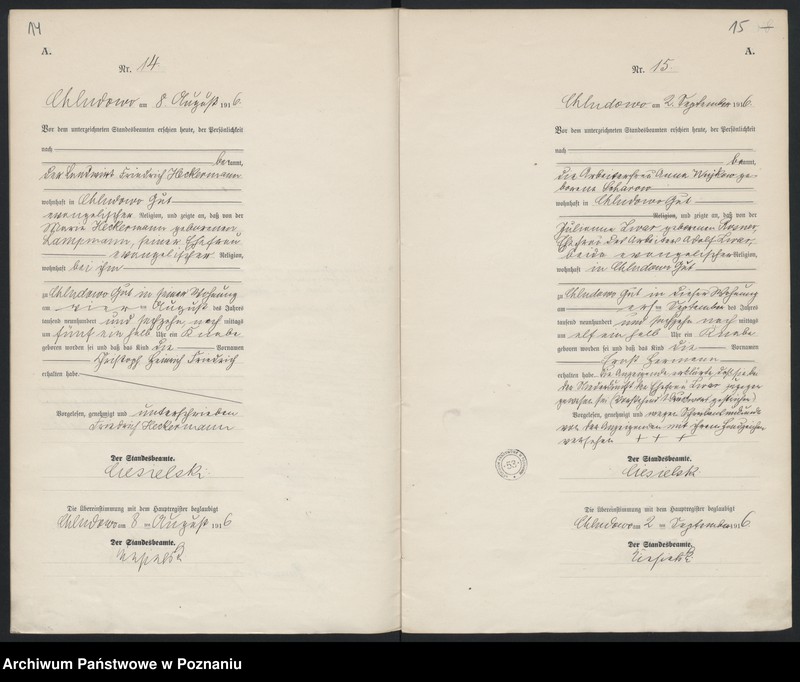 14
A.
Nr. 14.
Chludowo am 8 August 1916.
Vor dem unterzeichneten Standesbeamten erschien heute, der Persönlichkeit
nach
bekannt,
der Landwirt Friedrich Heckermann
wohnhaft in Chludowo Gut
evangelischer Religion, und zeigte an, daß von der
Marie Heckermann geborenen
Lampmann, seiner Ehefrau
evangelischer Religion,
wohnhaft bei ihm
zu Chludowo Gut in seiner Wohnung
am vier August des Jahres
tausend neunhundert und sechzehn nach mittags
um fünf ein halb Uhr ein Knabe
geboren worden sei und daß das Kind die Vornamen
Christoph Heinrich Friedrich
erhalten habe.
Vorgelesen, genehmigt und unterschrieben
Friedrich Heckermann
Der Standesbeamte.
Ciesielski
Die Übereinstimmung mit dem Hauptregister beglaubigt
Chludowo am 8 ten August 1916
Der Standesbeamte.
Ciesielski
15
A.
Nr. 15.
Chludowo am 2. September 1916.
Vor dem unterzeichneten Standesbeamten erschien heute, der Persönlichkeit
nach
bekannt,
die Arbeiterfrau Anna ge
borene Scharow
wohnhaft in Chludowo Gut
Religion, und zeigte an, daß von der
Julianna geborenen
Ehefrau des Arbeiters Adolf
beide evangelischer Religion,
wohnhaft in Chludowo Gut
zu Chludowo Gut in dieser Wohnung
am ersten September des Jahres
tausend neunhundert und sechzehn nach mittags
um elf ein halb Uhr ein Knabe
geboren worden sei und daß das Kind die Vornamen
Ernst Hermann
erhalten habe. Die Anzeigende erklärte, daß sie bei
der Niederkunft der Ehefrau zugegen
gewesen sei (Vorstehend 1 Druckwort gestrichen)
Vorgelesen, genehmigt und wegen Schreibensunkunde
von der Anzeigenden mit ihrem Handzeichen
versehen + + +
Der Standesbeamte.
Ciesielski
53
Die Übereinstimmung mit dem Hauptregister beglaubigt
Chludowo am 2 ten September 1916
Der Standesbeamte.
Ciesielski
Archiwum Państwowe w Poznaniu